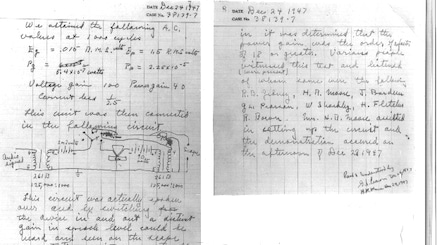 DATE Dec 24 1947
CASE No. 38139-7
We attained the following A.C.
values at 1000 cycles
Eg = .015 R.M.S. volts Ep = 1.5 R.M.S. volts
Pg = 5.4 x 10⁻⁷ watts Pp = 2.25 x 10⁻⁵
Voltage gain 100 Power gain 40
Current loss 1/2.5
This unit was then connected
in the following circuit.
261 B 261 B
125,000:1000 125,000:1000
This circuit was actually spoken
over and by switching the
device in and out a distinct
gain in speech level could be
heard and seen on the scope
DATE Dec 24 1947
CASE No. 38139-7
it was determined that the
power gain was the order of a factor
of 18 or greater. Various people
witnessed this test and listened
of whom some were the following
R.B. Gibney, H.R. Moore, J. Bardeen
G.L. Pearson, W. Shockley, H. Fletcher
R. Bown. Mr. H.R. Moore assisted
in setting up the circuit and
the demonstration occurred on
the afternoon of Dec 23 1947
Read & understood by
G.L. Pearson Dec 24, 1947
H.R. Moore